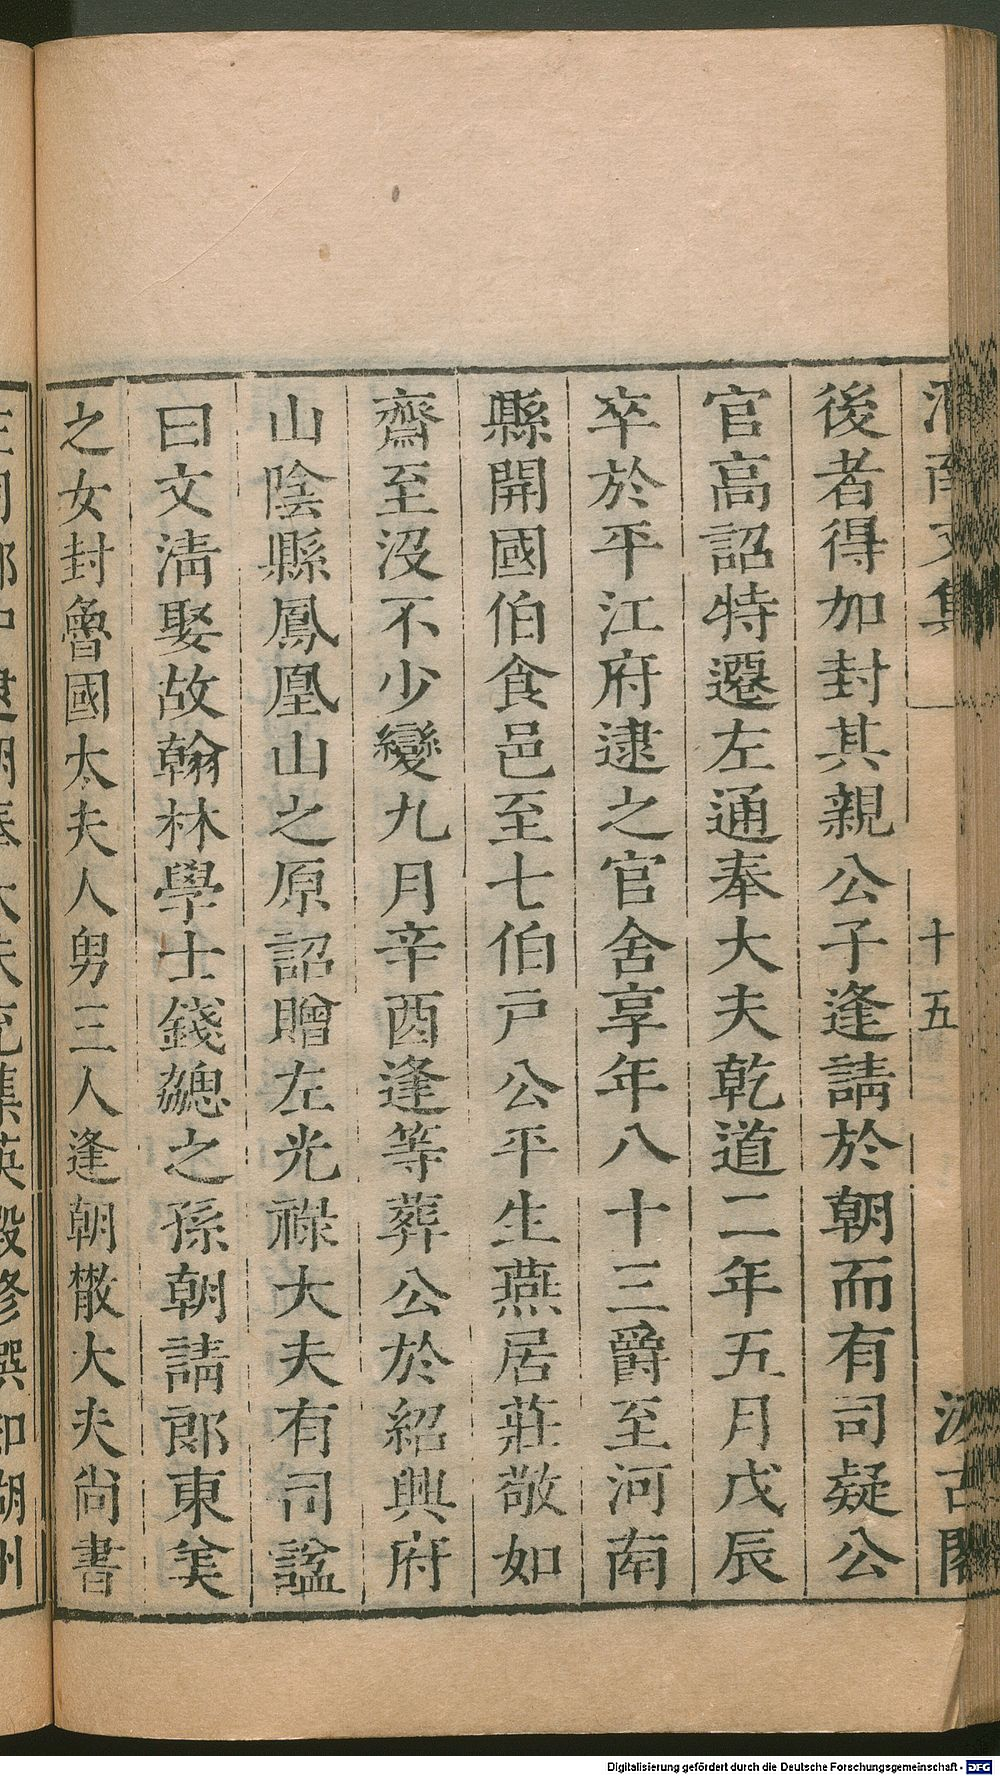 文集
十五
後者得加封其親公子逢請於朝而有司疑公
官高詔特遷左通奉大夫乾道二年五月戊辰
卒於平江府逮之官舍享年八十三爵至河南
縣開國伯食邑至七伯戶公平生燕居莊敬如
齋至沒不少變九月辛酉逢等葬公於紹興府
山陰縣鳳凰山之原詔贈左光祿大夫有司諡
曰文淸娶故翰林學士錢勰之孫朝請郎東美
之女封魯國太夫人男三人逢朝散大夫尙書
Digitalisierung gefördert durch die Deutsche Forschungsgemeinschaft - DFG